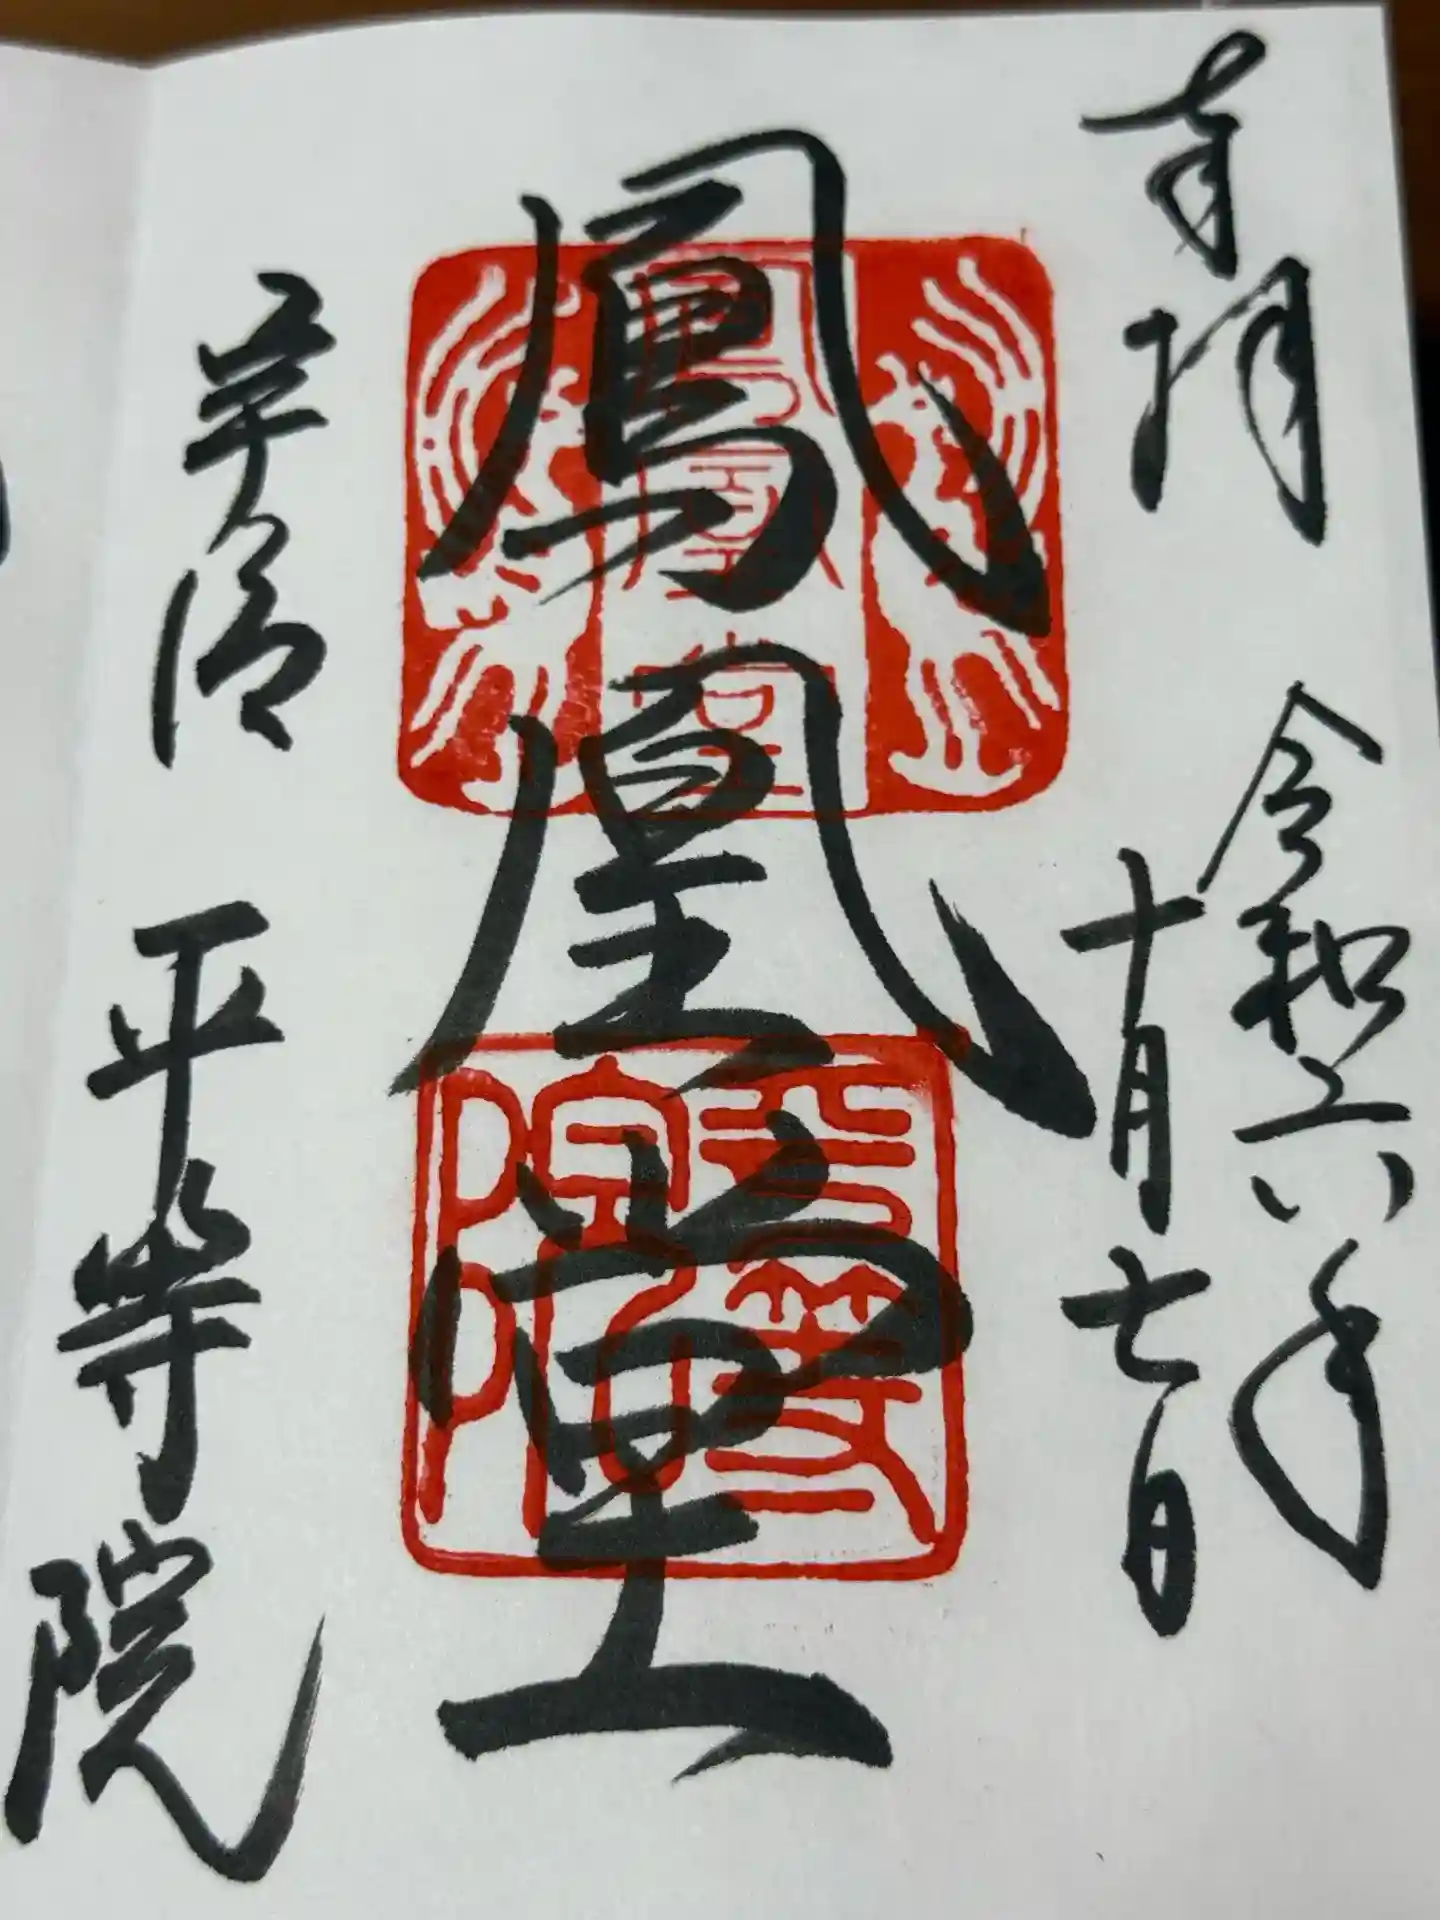 奉拝
令和六年
十月七日
鳳凰堂
鳳凰堂
平等院
宇治 平等院